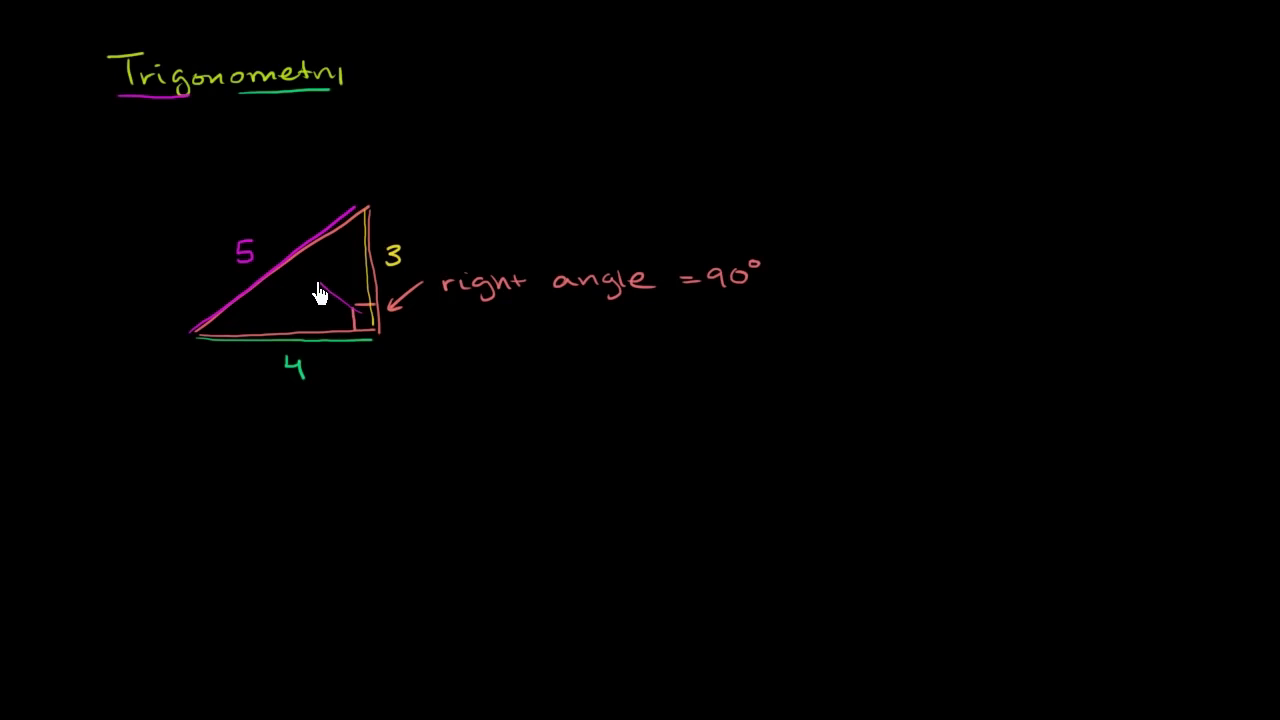 Trigonometry
5
3
right angle = 90°
4